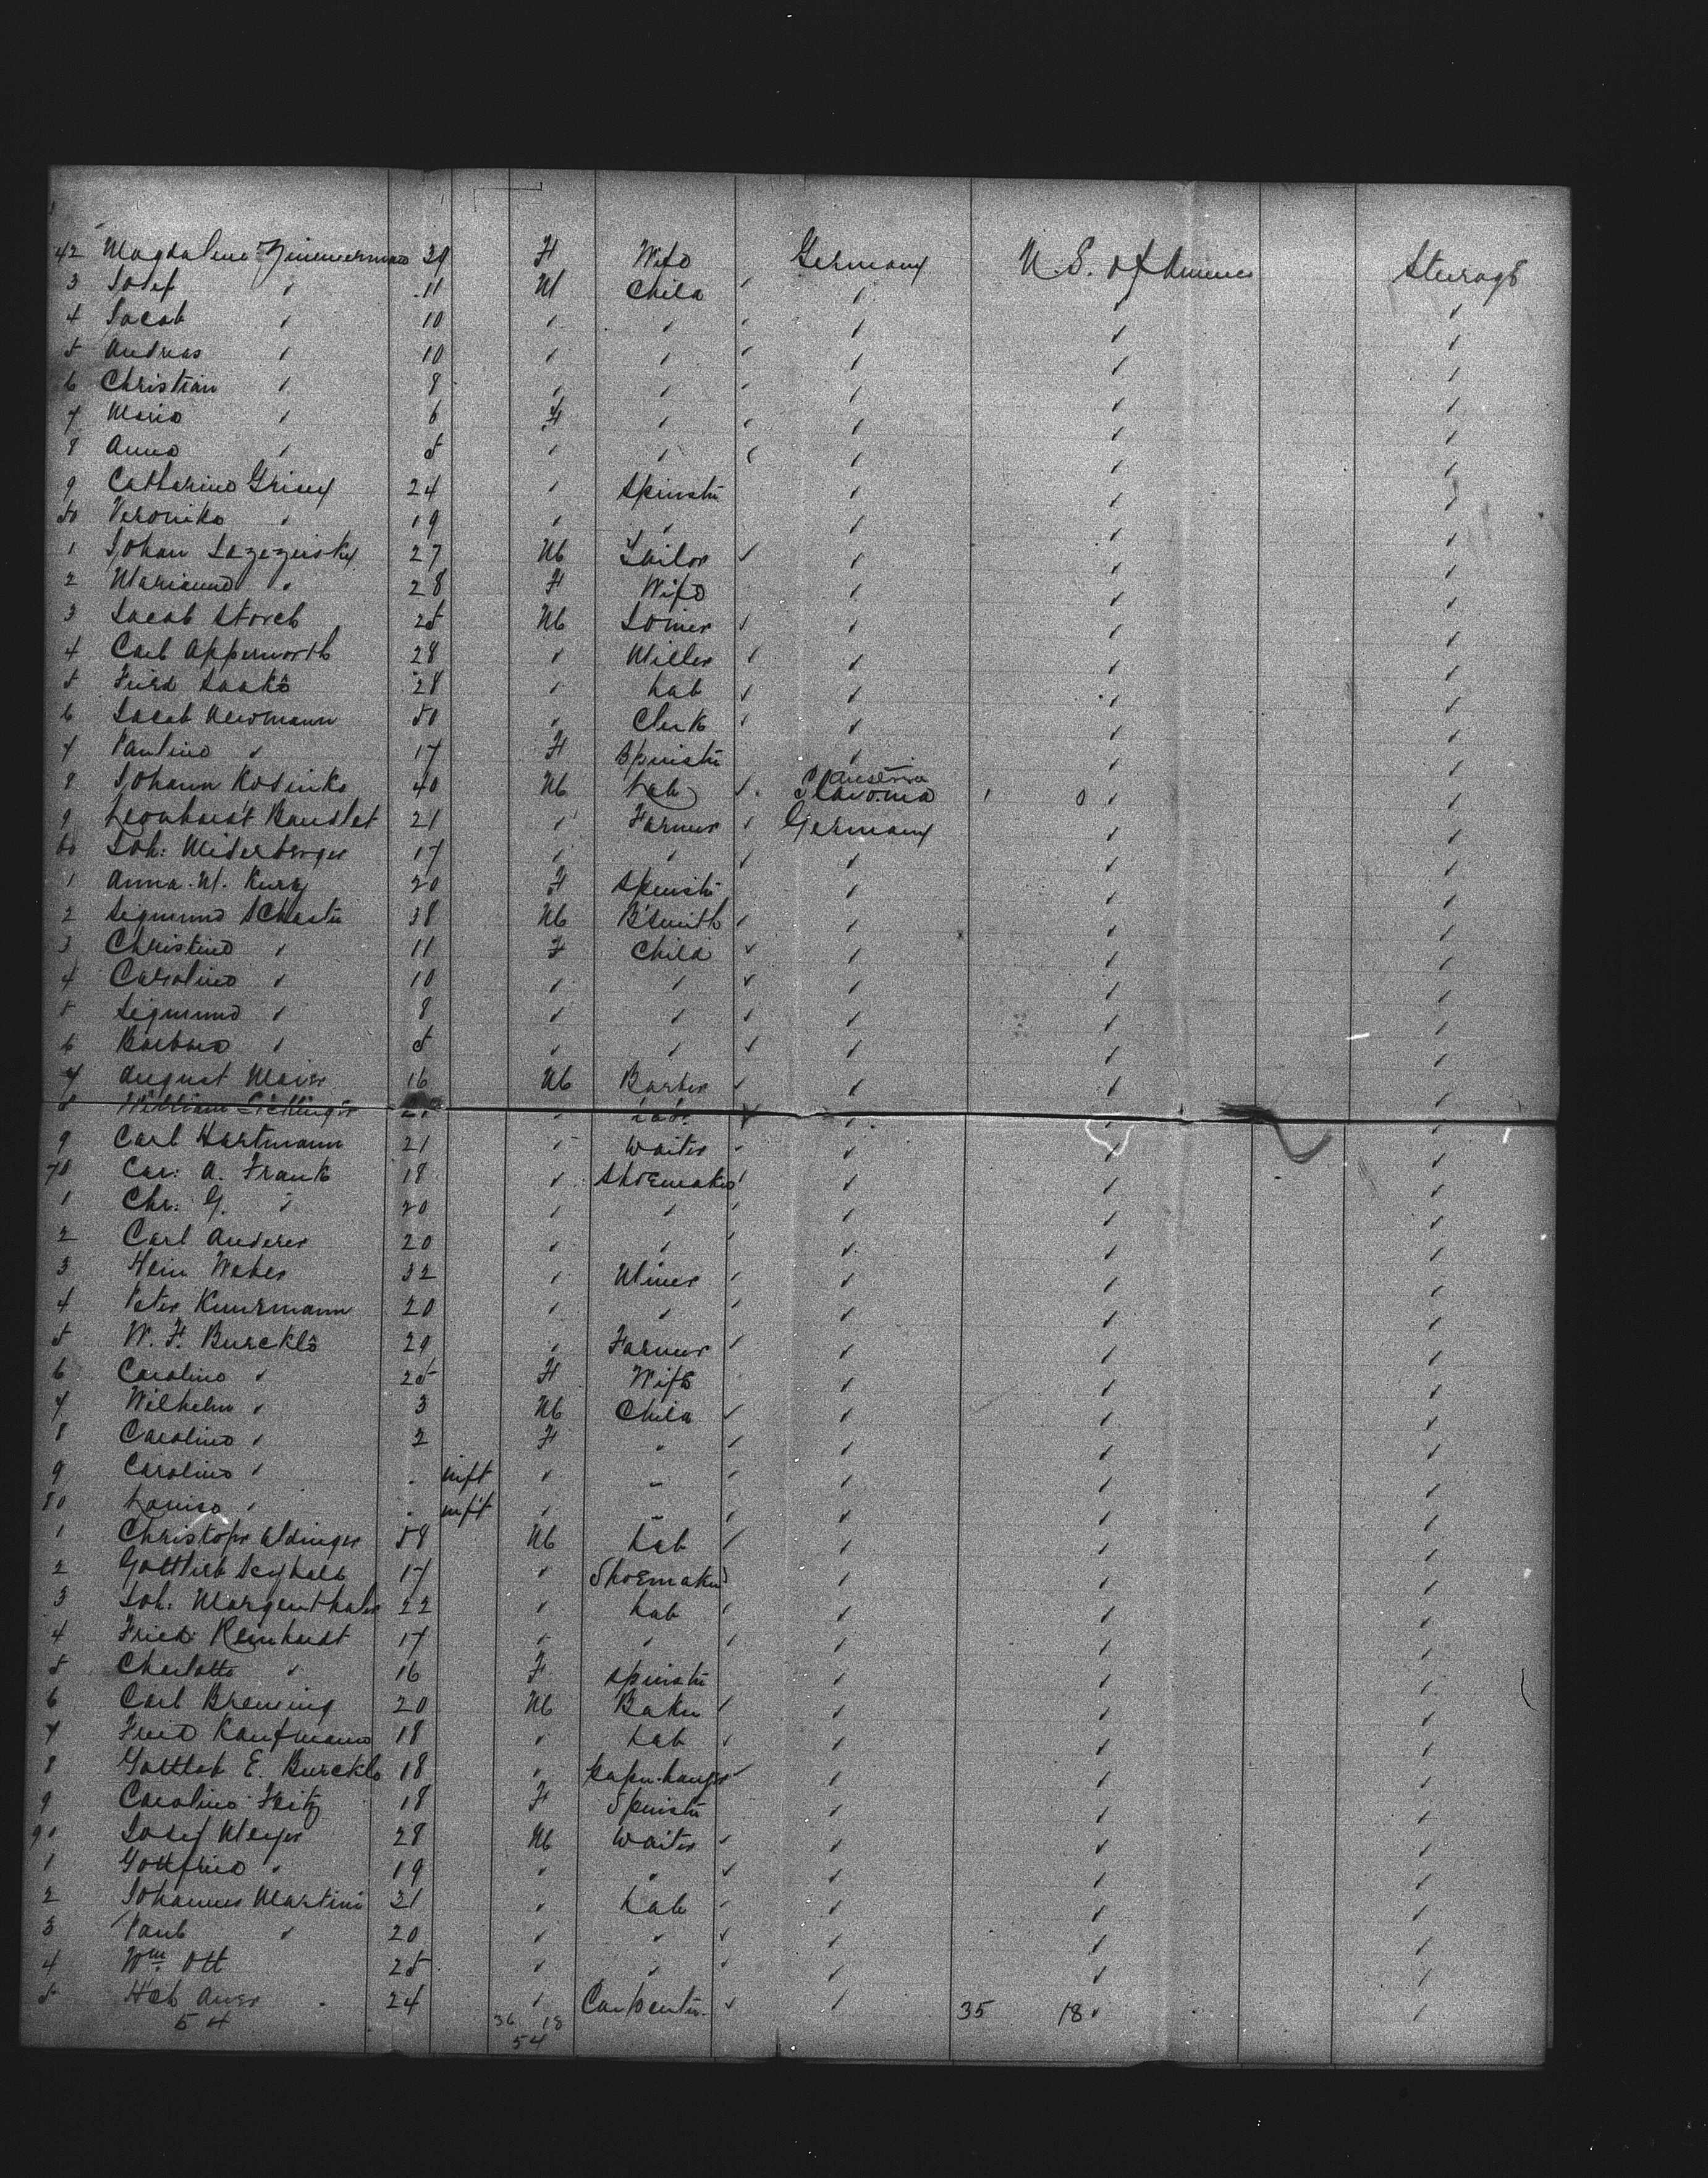 42 Magdalena Zimmermann 39 F Wife Germany U.S. of America Steerage
3 Josef " 11 M Child " " "
4 Jacob " 10 " " " " "
5 Andreas " 10 " " " " "
6 Christian " 8 " " " " "
7 Maria " 6 F " " " "
8 Anna " 5 " " " " "
9 Catharine 24 " Spinster " " "
50 Veronika " 19 " " " " "
1 Johan 27 M Tailor " " "
2 " 28 F Wife " " "
3 Jacob Storch 25 M Joiner " " "
4 Carl Appenworth 28 " Miller " " "
5 28 " Lab " " "
6 Jacob Newmann 50 " Clerk " " "
7 Pauline " 17 F Spinster " " "
8 Johann Kosinko 40 M Lab Austria Slavonia " "
9 Leonhardt 21 " Farmer Germany " "
60 Joh: Niderberger 17 " " " " "
1 Anna M. Kurz 20 F Spinster " " "
2 Sigmund Schuster 38 M B'Smith " " "
3 Christine " 11 F Child " " "
4 Caroline " 10 " " " " "
5 Sigmund " 8 " " " " "
6 Barbara " 5 " " " " "
7 August Maier 16 M Barber " " "
8 William " Lab. " " "
9 Carl Hartmann 21 " Waiter " " "
70 Car: A. Frank 18 " Shoemaker " " "
1 Chr: G. " 20 " " " " "
2 Carl Anderer 20 " " " " "
3 Hein Weber 32 " Miner " " "
4 Peter Kunzmann 20 " " " " "
5 W. F. Burckle 29 " Farmer " " "
6 Caroline " 25 F Wife " " "
7 Wilhelm " 3 M Child " " "
8 Caroline " 2 F " " " "
9 Caroline " inft " " " " "
80 Louisa " inft " " " " "
1 Christoph Aldinger 58 M Lab " " "
2 Gottlieb Seybold 17 " Shoemaker " " "
3 Joh: Morgenthaler 22 " Lab " " "
4 Fried: Reinhardt 17 " " " " "
5 Charlotte " 16 F Spinster " " "
6 Carl Breuning 20 M Baker " " "
7 Fried Kaufmann 18 " Lab " " "
8 Gottlob E. Burckle 18 " paper-hanger " " "
9 Caroline Fritz 18 F Spinster " " "
90 Josef Meyer 28 M Waiter " " "
1 Gottfried " 19 " " " " "
2 Johannes Martini 31 " Lab " " "
3 Paul " 20 " " " " "
4 Wm. Ott 25 " " " " "
5 24 " Carpenter " 35 18 " "
54 36 18
54